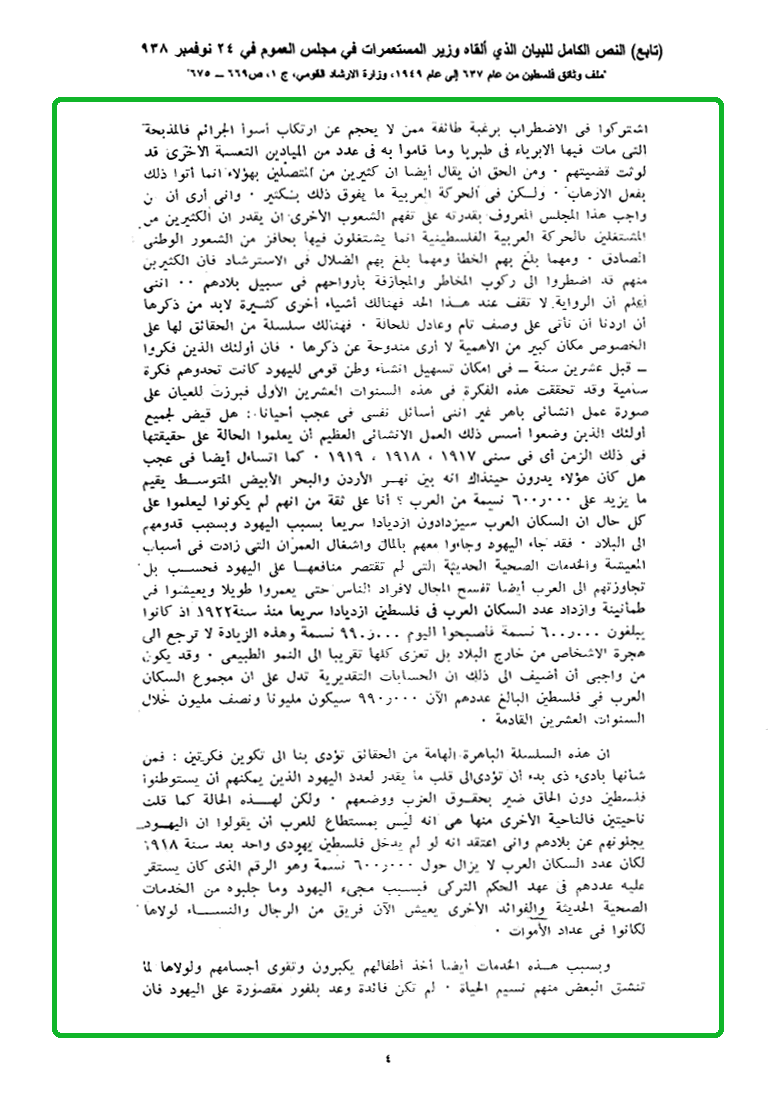 (تابع) النص الكامل للبيان الذي ألقاه وزير المستعمرات في مجلس العموم في ٢٤ نوفمبر ٩٣٨
"ملف وثائق فلسطين من عام ٦٣٧ إلى عام ١٩٤٩، وزارة الارشاد القومي، ج ١، ص٦٦٩ ــ ٦٧٥"
اشتركوا فى الاضطراب برغبة طائفة ممن لا يحجم عن ارتكاب أسوأ الجرائم فالمذبحة
التى مات فيها الابرياء فى طبريا وما قاموا به فى عدد من الميادين التعسة الأخرى قد
لوثت قضيتهم ٠ ومن الحق ان يقال أيضا ان كثيرين من المتصلين بهؤلاء انما أتوا ذلك
بفعل الارهاب ٠ ولكن فى الحركة العربية ما يفوق ذلك بكثير ٠ وانى أرى أن ن
واجب هذا المجلس المعروف بقدرته على تفهم الشعوب الأخرى ان يقدر ان الكثيرين من
المشتغلين بالحركة العربية الفلسطينية انما يشتغلون فيها بحافز من الشعور الوطنى
الصادق ٠ ومهما بلغ بهم الخطأ ومهما بلغ بهم الضلال فى الاسترشاد فان الكثيرين
منهم قد اضطروا الى ركوب المخاطر والمجازفة بأرواحهم فى سبيل بلادهم ٠٠ اننى
أعلم أن الرواية لا تقف عند هذا الحد فهنالك أشياء أخرى كثيرة لابد من ذكرها
أن اردنا أن نأتى على وصف تام وعادل للحالة ٠ فهنالك سلسلة من الحقائق لها على
الخصوص مكان كبير من الأهمية لا أرى مندوحة عن ذكرها ٠ فان أولئك الذين فكروا
ــ قبل عشرين سنة ــ فى امكان تسهيل انشاء وطن قومى لليهود كانت تحدوهم فكرة
سامية وقد تحققت هذه الفكرة فى هذه السنوات العشرين الأولى فبرزت للعيان على
صورة عمل انشائى باهر غير اننى أسائل نفسى فى عجب أحيانا : هل قيض لجميع
أولئك الذين وضعوا أسس ذلك العمل الانشائى العظيم أن يعلموا الحالة على حقيقتها
فى ذلك الزمن أى فى سنى ١٩١٧ ، ١٩١٨ ، ١٩١٩ ٠ كما اتساءل أيضا فى عجب
هل كان هؤلاء يدرون حينذاك انه بين نهر الأردن والبحر الأبيض المتوسط يقيم
ما يزيد على ٦٠٠ر٠٠٠ نسيمة من العرب ؟ أنا على ثقة من انهم لم يكونوا ليعلموا على
كل حال ان السكان العرب سيزدادون ازديادا سريعا بسبب اليهود وبسبب قدومهم
الى البلاد ٠ فقد جاء اليهود وجاءوا معهم بالمال واشغال العمران التى زادت فى أسباب
المعيشة والخدمات الصحية الحديثة التى لم تقتصر منافعها على اليهود فحسب بل
تجاوزتهم الى العرب أيضا تفسح المجال لافراد الناس حتى يعمروا طويلا ويعيشوا فى
طمأنينة وازداد عدد السكان العرب فى فلسطين ازديادا سريعا منذ سنة١٩٢٢ اذ كانوا
يبلغون ٦٠٠ر٠٠٠ نسمة فأصبحوا اليوم ٩٩٠ر٠٠٠ نسمة وهذه الزيادة لا ترجع الى
هجرة الاشخاص من خارج البلاد بل تعزى كلها تقريبا الى النمو الطبيعى ٠ وقد يكون
من واجبى أن أضيف الى ذلك ان الحسابات التقديرية تدل على ان مجموع السكان
العرب فى فلسطين البالغ عددهم الآن ٩٩٠ر٠٠٠ سيكون مليونا ونصف مليون خلال
السنوات العشرين القادمة ٠
ان هذه السلسلة الباهرة الهامة من الحقائق تؤدى بنا الى تكوين فكرتين : فمن
شأنها بادىء ذى بدء أن تؤدىالى قلب ما يقدر لعدد اليهود الذين يمكنهم أن يستوطنوا
فلسطين دون الحاق ضير بحقوق العرب ووضعهم ٠ ولكن لهــذه الحالة كما قلت
ناحيتين فالناحية الأخرى منها هى انه ليس بمستطاع للعرب أن يقولوا ان اليهود
يجلونهم عن بلادهم وانى اعتقد انه لو لم يدخل فلسطين يهودى واحد بعد سنة ١٩١٨
لكان عدد السكان العرب لا يزال حول ٦٠٠ر٠٠٠ نسمة وهو الرقم الذى كان يستقر
عليه عددهم فى عهد الحكم التركى فبسبب مجىء اليهود وما جلبوه من الخدمات
الصحية الحديثة والفوائد الأخرى يعيش الآن فريق من الرجال والنســاء لولاها
لكانوا فى عداد الأموات ٠
وبسبب هــذه الخدمات أيضا أخذ أطفالهم يكبرون وتقوى أجسامهم ولولاها لما
تنشق البعض منهم نسيم الحياة ٠ لم تكن فائدة وعد بلفور مقصورة على اليهود فان
٤